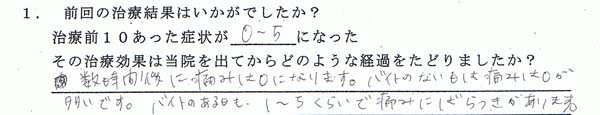 1． 前回の治療結果はいかがでしたか？
治療前１０あった症状が 0～5 になった
その治療効果は当院を出てからどのような経過をたどりましたか？
数時間後に痛みは0になります。バイトのない日も痛みは0が
多いです。バイトのある日も、1～5くらいで痛みにばらつきがあります